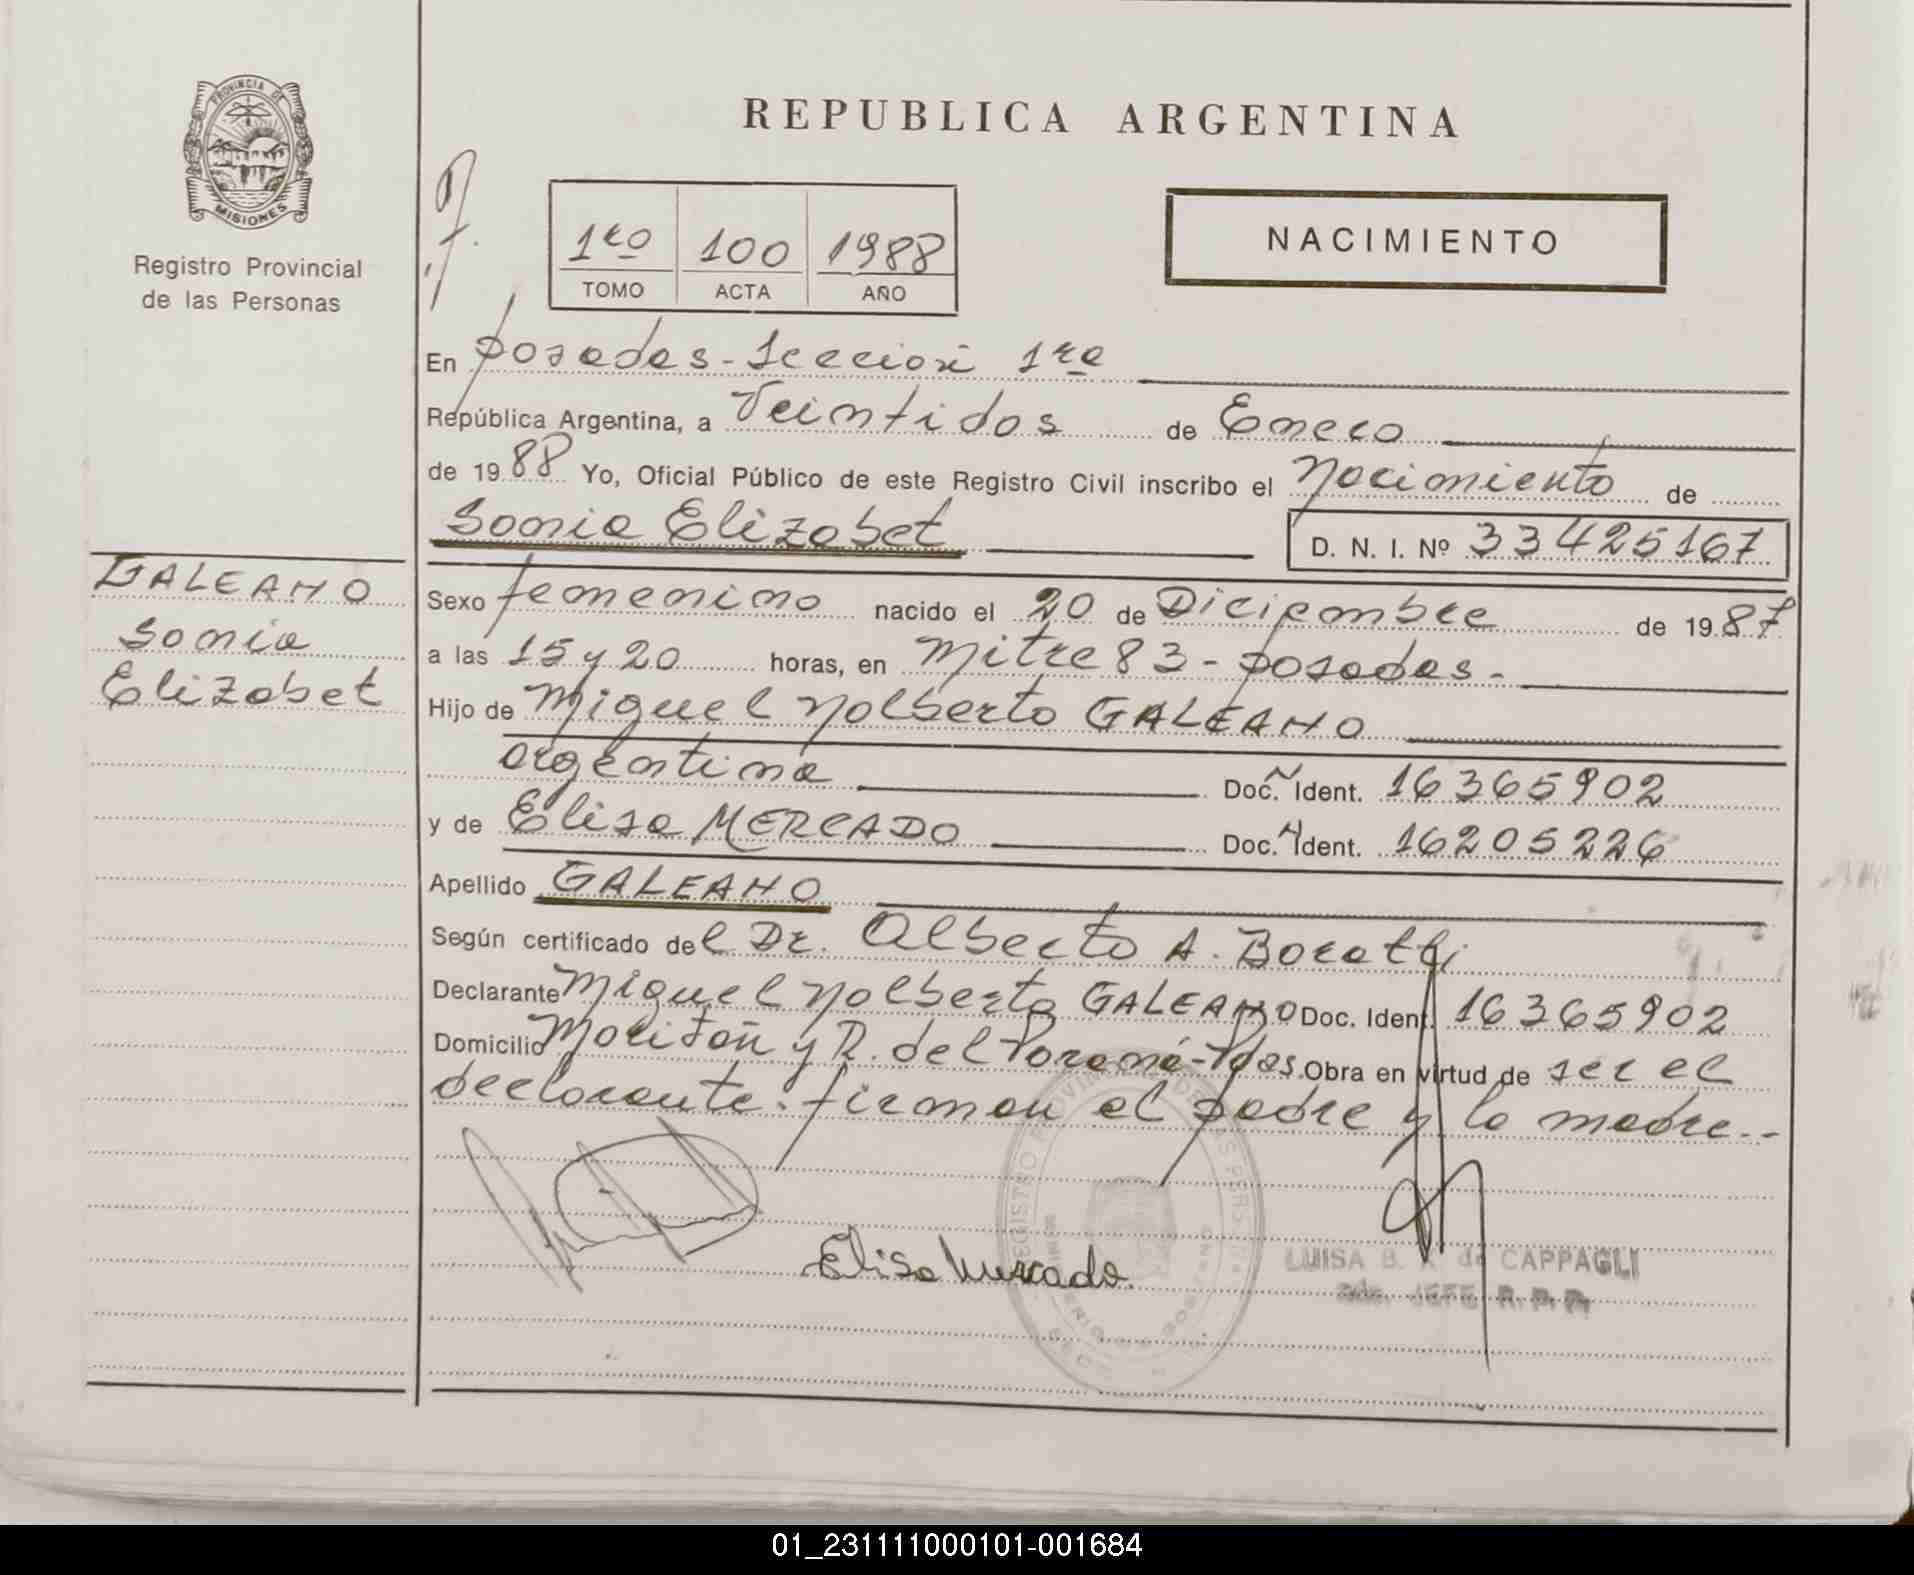 PROVINCIA DE
MISIONES
Registro Provincial
de las Personas
REPUBLICA ARGENTINA
1ro 100 1988
TOMO ACTA AÑO
NACIMIENTO
En Posadas - Sección 1ra
República Argentina, a Veintidos de Enero
de 1988 Yo, Oficial Público de este Registro Civil inscribo el Nacimiento de
Sonia Elizabet D. N. I. Nº 33425167
GALEANO
Sonia
Elizabet
Sexo femenino nacido el 20 de Diciembre de 1987
a las 15 y 20 horas, en Mitre 83 - Posadas -
Hijo de Miguel Nolberto GALEANO
argentina Doc. N Ident. 16365902
y de Elisa MERCADO Doc. N Ident. 16205226
Apellido GALEANO
Según certificado del Dr. Alberto A.
Declarante Miguel Nolberto GALEANO Doc. Ident. 16365902
Domicilio y R. del Paraná - Pdas. Obra en virtud de ser el
declarante. firman el padre y la madre. -
Elisa Mercado.
LUISA B. de CAPPAGLI
JEFE R. P. P.
01_231111000101-001684